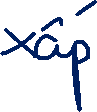 xấp